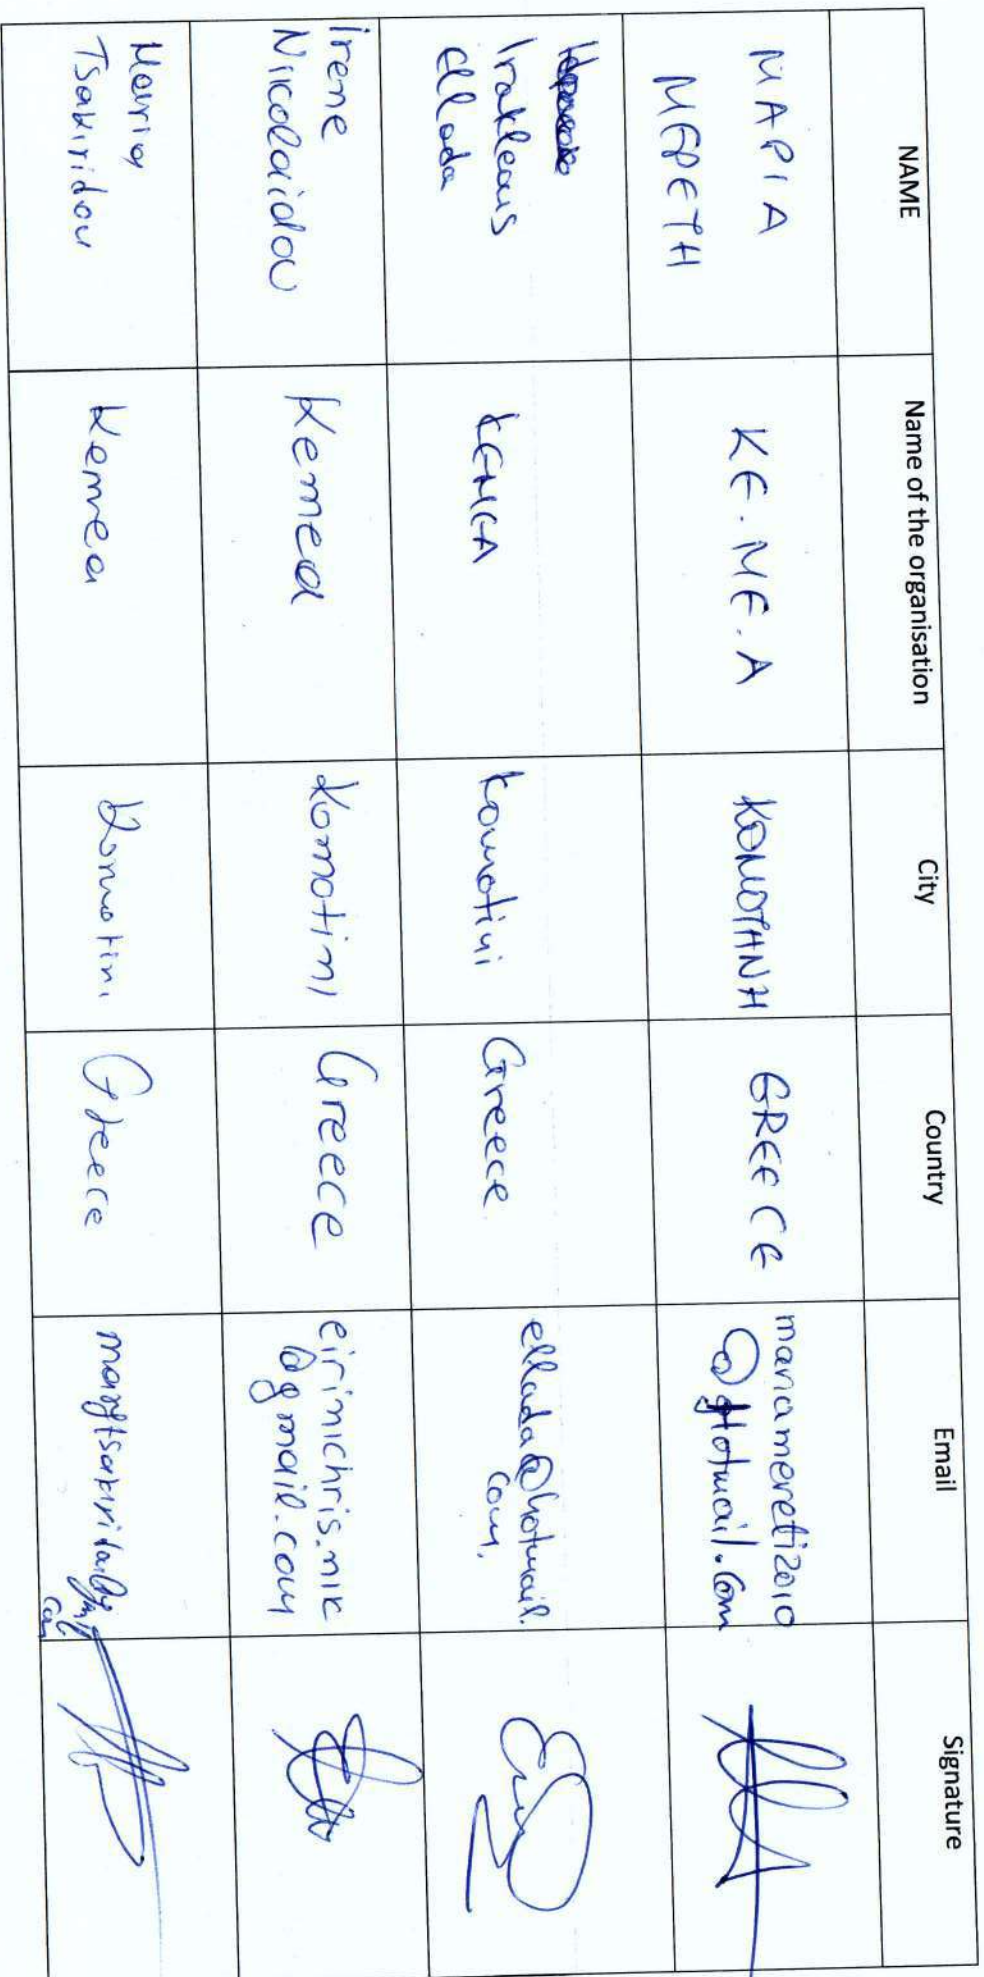 NAME
Name of the organisation
City
Country
Email
Signature
ΜΑΡΙΑ
ΜΕΡΕΤΗ
ΚΕ.ΜΕ.Α
ΚΟΜΟΤΗΝΗ
GREECE
mariamereti2010
@Hotmail.com
Irakleous
Ellada
ΚΕΜΕΑ
Komotini
Greece
ellada@hotmail.
com.
Irene
Nikolaidou
Kemea
Komotini
Greece
eirinichris.nik
@gmail.com
Maria
Tsakiridou
Kemea
Komotini
Greece